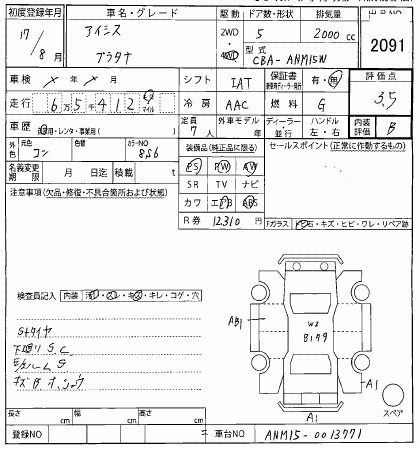 初度登録年月 車名・グレード 駆動 ドア数・形状 排気量 出品NO
17 / 8月 アイシス プラタナ 2WD 4WD 5 2000 cc 2091
型式 CBA-ANM15W
車検 × 年 × 月 シフト IAT 保証書 有・無 評価点 3.5
走行 6万5千412 マイル 冷房 AAC 燃料 G
車歴 自家用・レンタ・事業用( ) 定員 7人 外車モデル 年 ディーラー・並行 ハンドル 左・右 内装評価 B
外色 元色 コン 色替 カラーNO 8S6
装備品(純正品に限る) セールスポイント(正常に作動するもの)
名義変更期限 月 日迄 積載 t
PS PW AW
SR TV ナビ
カワ エアB ABS
R券 12,310 円
注意事項(欠品・修復・不具合箇所および状態)
Fガラス 飛石・キズ・ヒビ・ワレ・リペア跡
検査員記入 内装 汚・スレ・キズ・キレ・コゲ・穴
Sタイヤ
下廻り S.C.
AB1
W2
B179
A1
A1
スペア
長さ cm 幅 cm 高さ cm
登録NO 車台NO ANM15-0013771